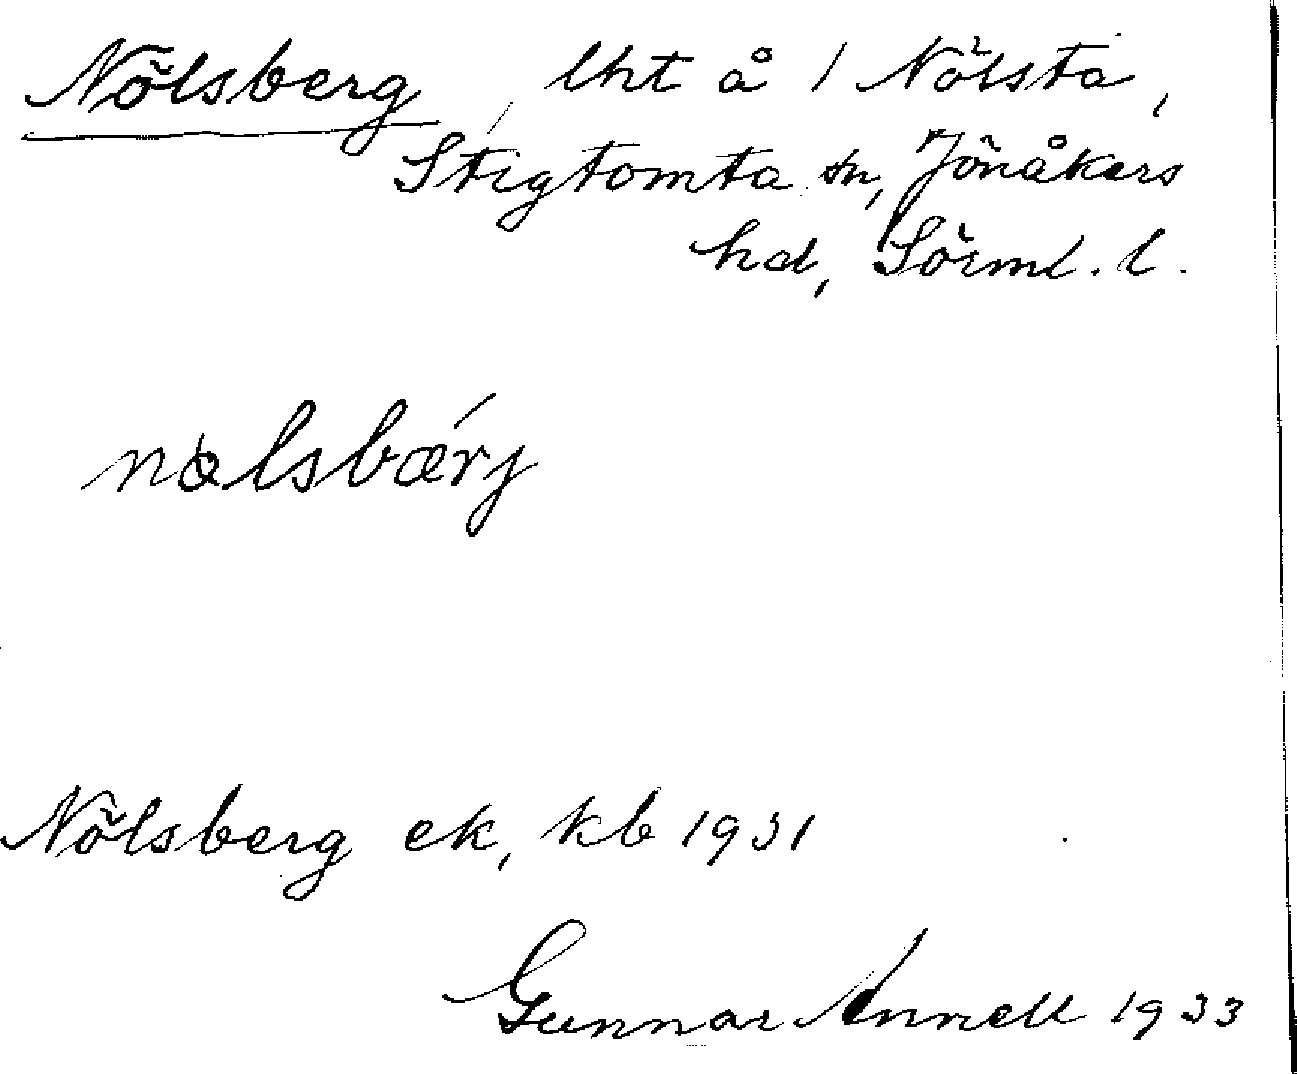 Nölsberg, lht å 1 Nölsta,
Stigtomta sn, Jönåkers
hd, Sörml. l.
nolsbærj
Nölsberg ek, kb 1931
Gunnar Annell 1933